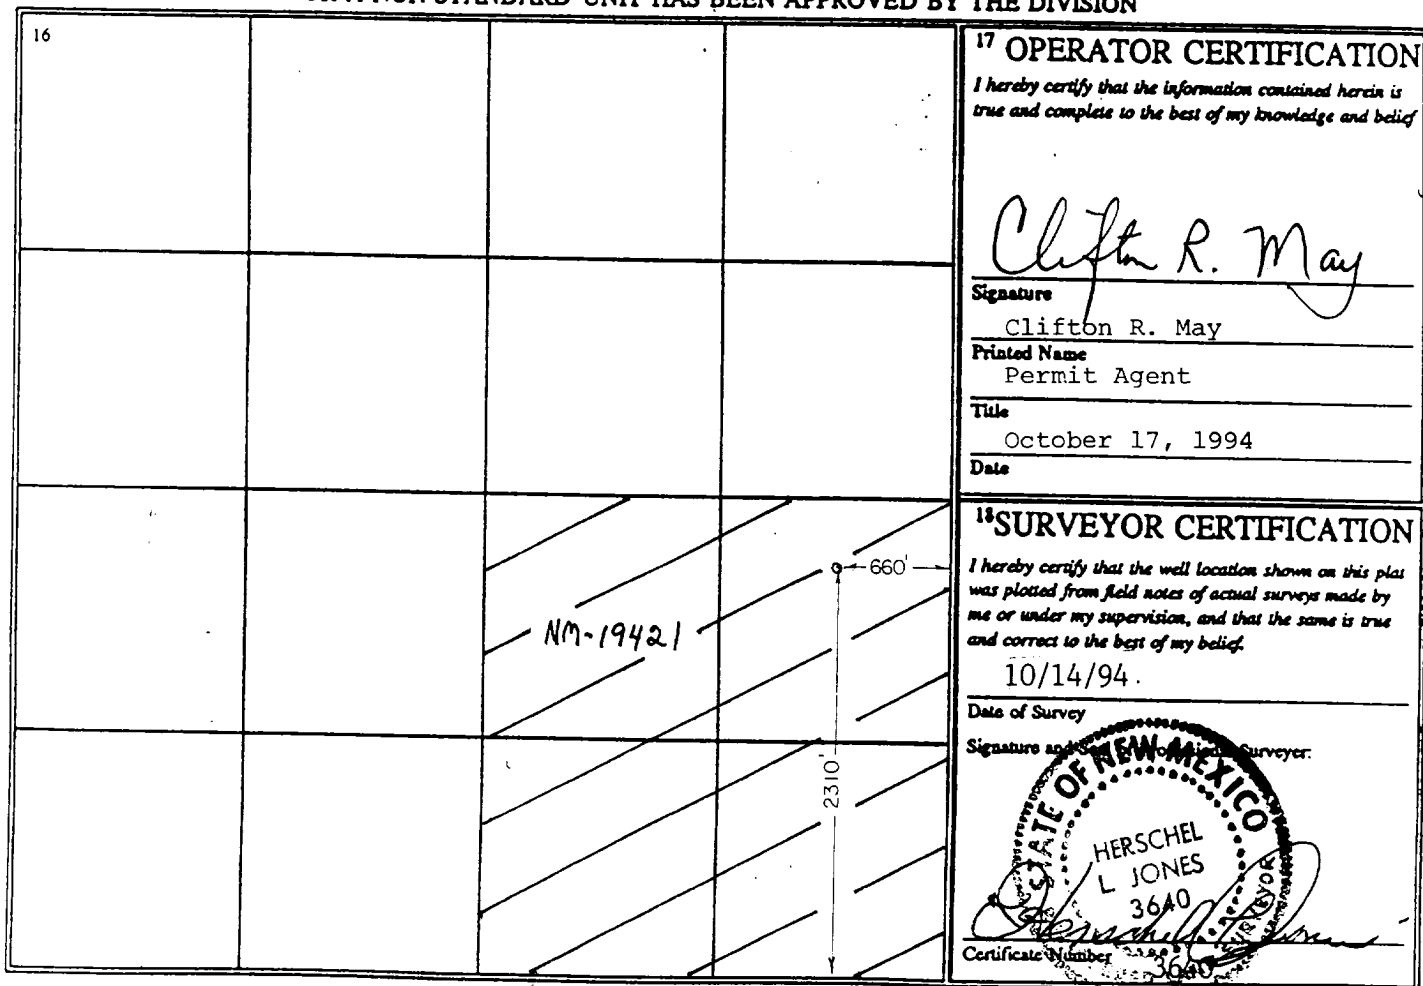 NON-STANDARD UNIT HAS BEEN APPROVED BY THE DIVISION
16
660'
NM-19421
2310'
17 OPERATOR CERTIFICATION
I hereby certify that the information contained herein is
true and complete to the best of my knowledge and belief
Clifton R. May
Signature
Clifton R. May
Printed Name
Permit Agent
Title
October 17, 1994
Date
18 SURVEYOR CERTIFICATION
I hereby certify that the well location shown on this plat
was plotted from field notes of actual surveys made by
me or under my supervision, and that the same is true
and correct to the best of my belief.
10/14/94
Date of Survey
Signature and Surveyer:
STATE OF NEW MEXICO
HERSCHEL
L JONES
3640
SURVEYOR
Certificate Number 3640